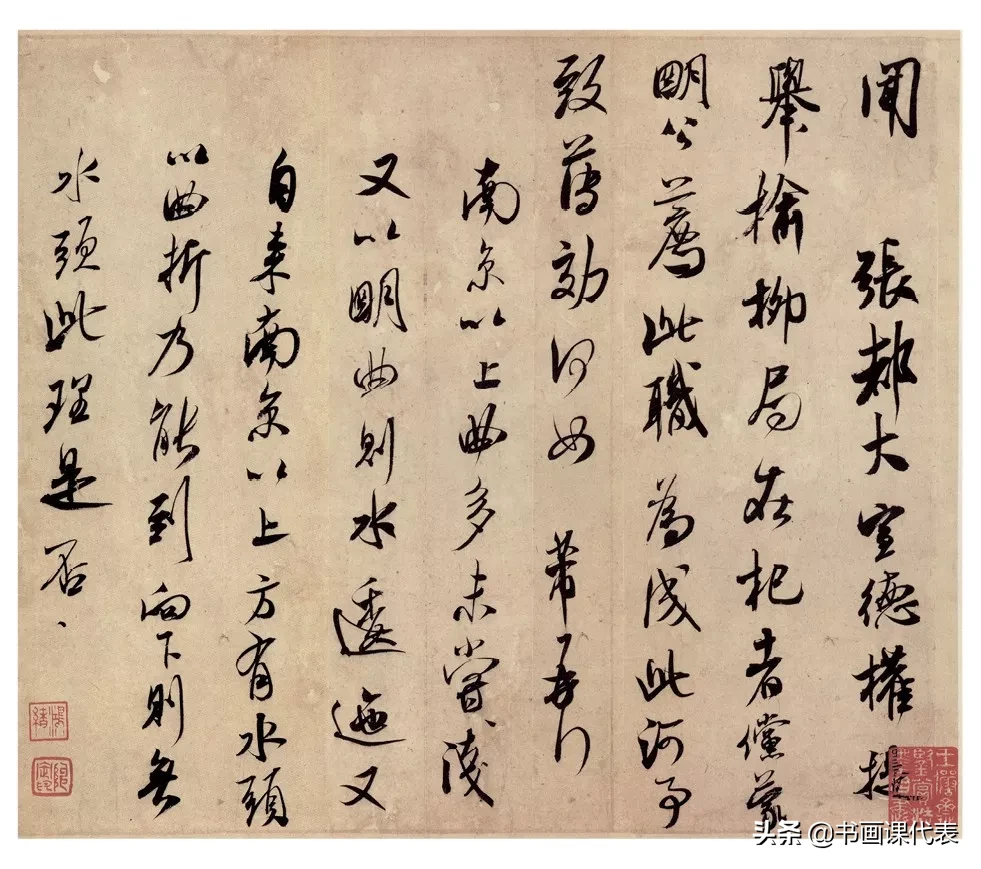 闻 張都大宣德權提
舉榆柳局在杞者儻蒙
明公薦此職為成此河事
致薄効何如 芾再行
南京以上曲多未嘗淺
又以明曲則水逶迤又
自来南京以上方有水頭
以曲折乃能到向下則無
水頭此理是否
头条 @书画课代表